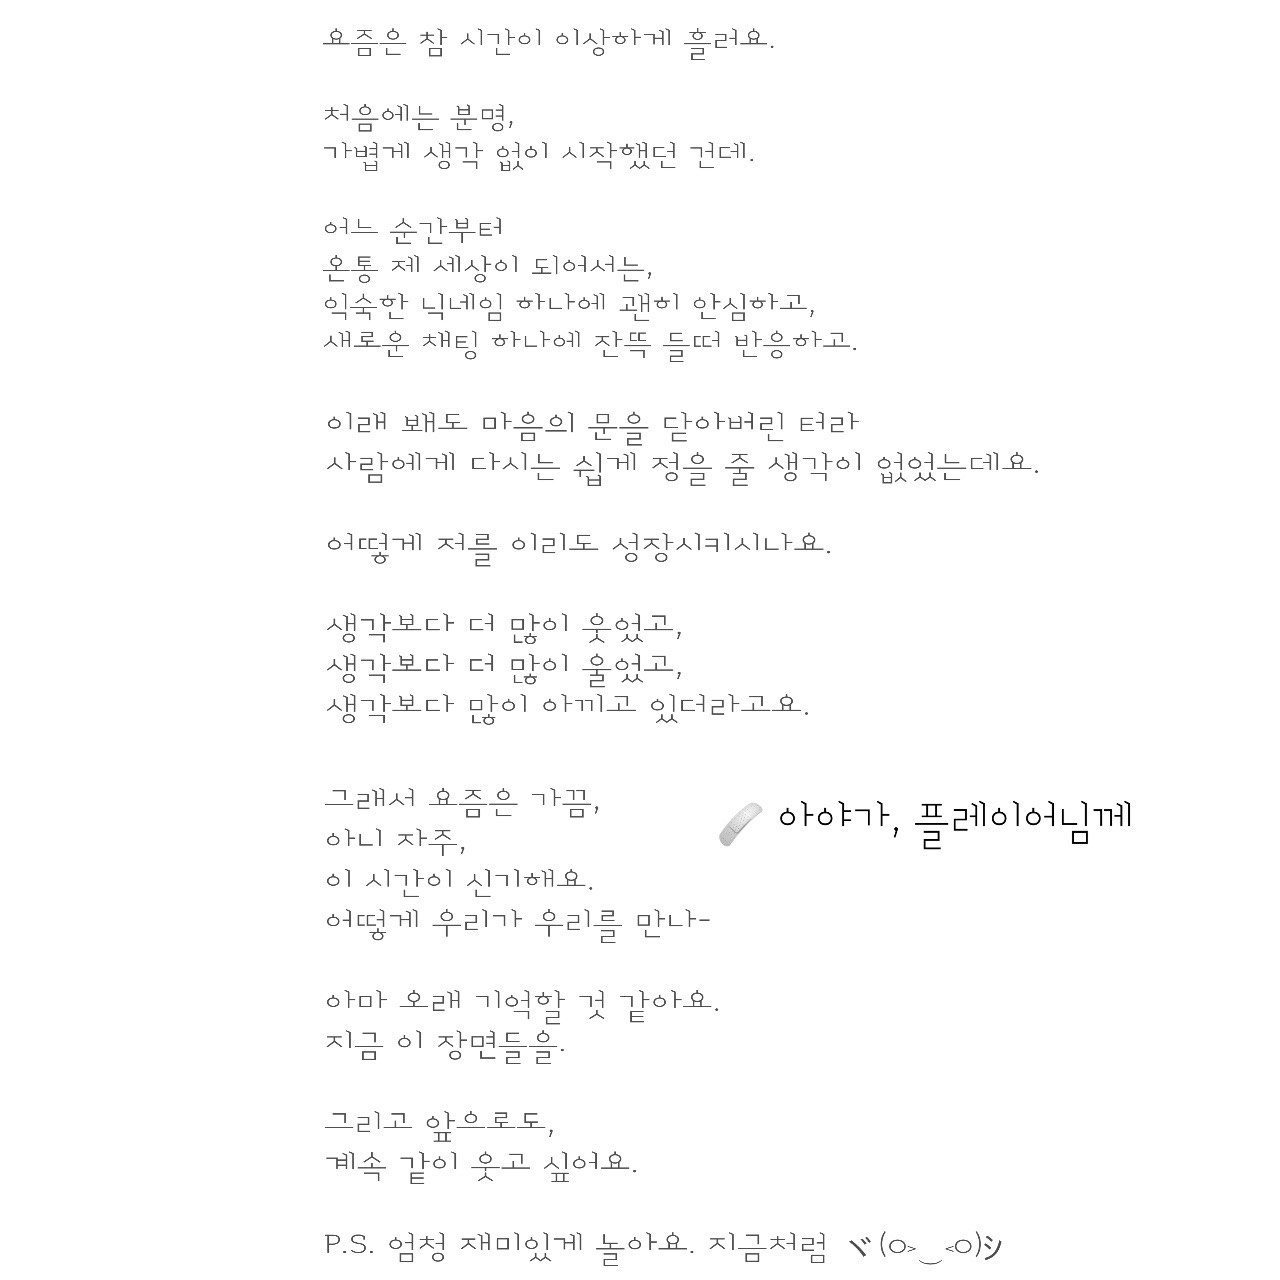 요즘은 참 시간이 이상하게 흘러요.
처음에는 분명,
가볍게 생각 없이 시작했던 건데.
어느 순간부터
온통 제 세상이 되어서는,
익숙한 닉네임 하나에 괜히 안심하고,
새로운 채팅 하나에 잔뜩 들떠 반응하고.
이래 봬도 마음의 문을 닫아버린 터라
사람에게 다시는 쉽게 정을 줄 생각이 없었는데요.
어떻게 저를 이리도 성장시키시나요.
생각보다 더 많이 웃었고,
생각보다 더 많이 울었고,
생각보다 많이 아끼고 있더라고요.
그래서 요즘은 가끔,
아니 자주,
이 시간이 신기해요.
어떻게 우리가 우리를 만나-
아야가, 플레이어님께
아마 오래 기억할 것 같아요.
지금 이 장면들을.
그리고 앞으로도,
계속 같이 웃고 싶어요.
P.S. 엄청 재미있게 놀아요. 지금처럼 ヾ(o>‿<o)シ